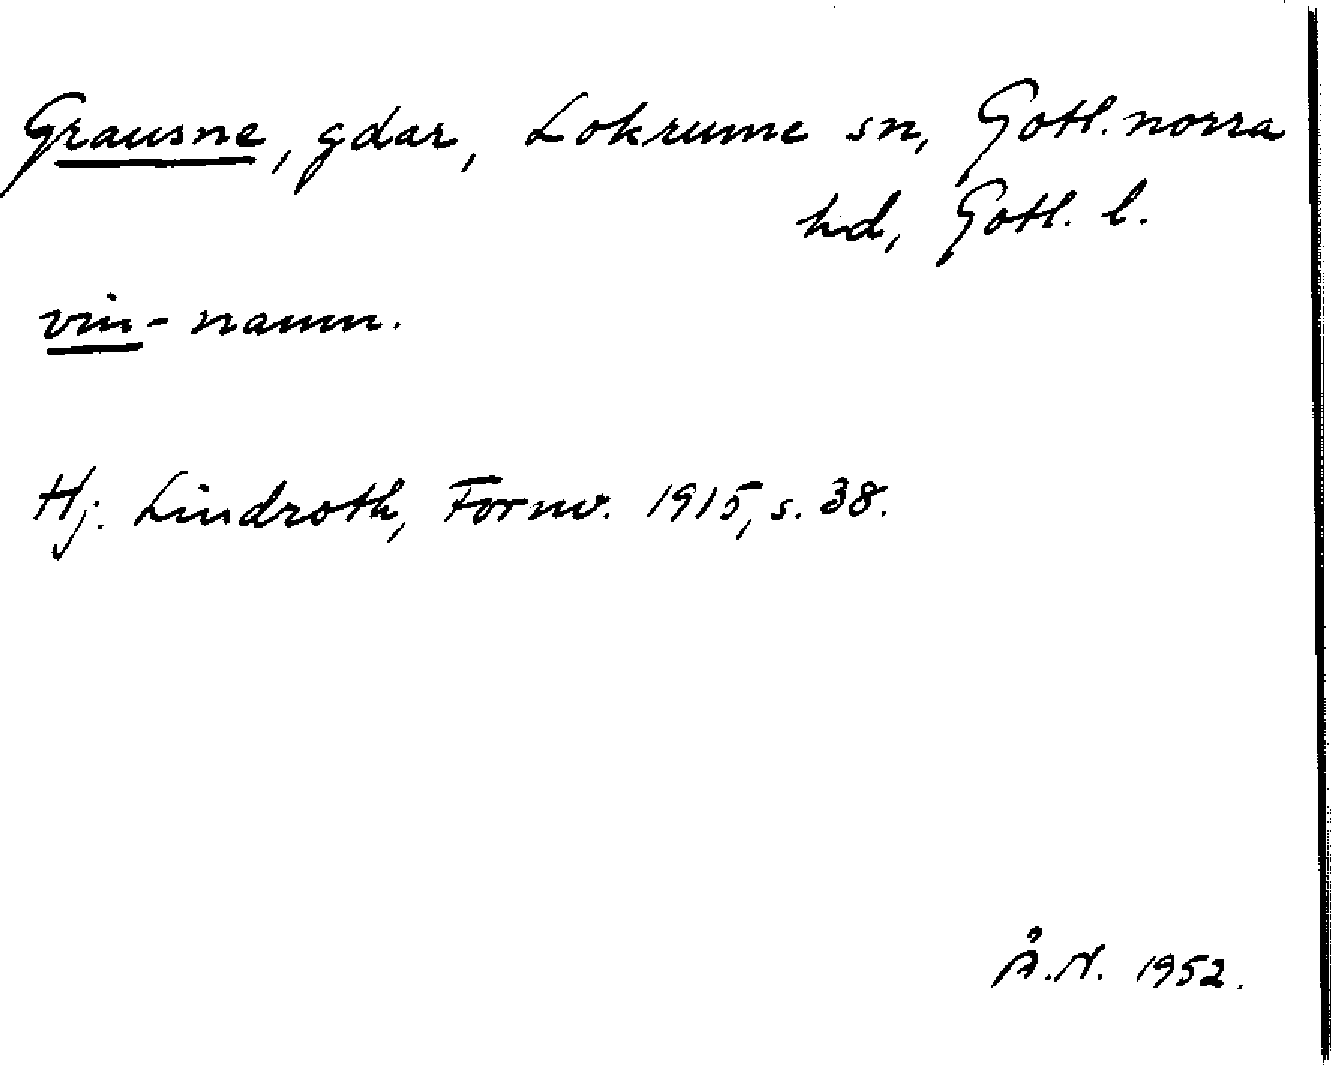 Grausne, gdar, Lokrume sn, Gotl. norra
hd, Gotl. l.
vin-namn.
Hj. Lindroth, Fornv. 1915, s. 38.
Å.N. 1952.